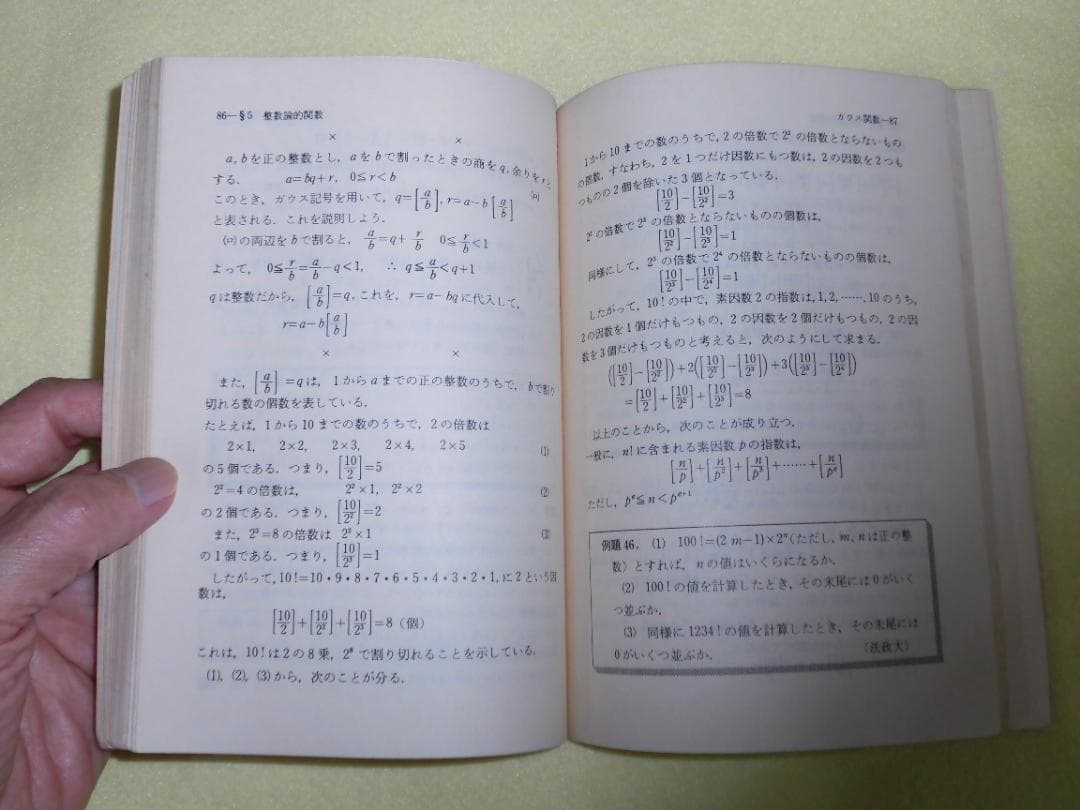 86—§5 整数論的関数
× ×
a, bを正の整数とし，aをbで割ったときの商をq, 余りをrと
する． a=bq+r, 0≦r<b (ロ)
このとき，ガウス記号を用いて，q=[a/b], r=a-b[a/b]
と表される．これを説明しよう．
(ロ)の両辺をbで割ると， a/b=q+r/b 0≦r/b<1
よって， 0≦r/b=a/b-q<1, ∴ q≦a/b<q+1
qは整数だから，[a/b]=q, これを，r=a-bqに代入して，
r=a-b[a/b]
× ×
また，[a/b]=qは，1からaまでの正の整数のうちで，bで割り
切れる数の個数を表している．
たとえば，1から10までの数のうちで，2の倍数は
2×1, 2×2, 2×3, 2×4, 2×5 (1)
の5個である．つまり，[10/2]=5
2²=4の倍数は， 2²×1, 2²×2 (2)
の2個である．つまり，[10/2²]=2
また，2³=8の倍数は 2³×1 (3)
の1個である．つまり，[10/2³]=1
したがって，10!=10・9・8・7・6・5・4・3・2・1, に2という因
数は，
[10/2]+[10/2²]+[10/2³]=8（個）
これは，10!は2の8乗，2⁸で割り切れることを示している．
(1), (2), (3)から，次のことが分る．
ガウス関数—87
1から10までの数のうちで，2の倍数で2²の倍数とならないもの
の指数，すなわち，2を1つだけ因数にもつ数は，2の因数を2つも
つものの2個を除いた3個となっている．
[10/2]-[10/2²]=3
2²の倍数で2³の倍数とならないものの個数は，
[10/2²]-[10/2³]=1
同様にして，2³の倍数で2⁴の倍数とならないものの個数は，
[10/2³]-[10/2⁴]=1
したがって，10!の中で，素因数2の指数は，1, 2, ……, 10のうち，
2の因数を1個だけもつもの，2の因数を2個だけもつもの，2の因
数を3個だけもつものと考えると，次のようにして求まる．
([10/2]-[10/2²])+2([10/2²]-[10/2³])+3([10/2³]-[10/2⁴])
=[10/2]+[10/2²]+[10/2³]=8
以上のことから，次のことが成り立つ．
一般に，n!に含まれる素因数pの指数は，
[n/p]+[n/p²]+[n/p³]+……+[n/pᵉ]
ただし，pᵉ≦n<pᵉ⁺¹
例題46． (1) 100!=(2m-1)×2ⁿ（ただし，m, nは正の整
数）とすれば，nの値はいくらになるか．
(2) 100!の値を計算したとき，その末尾には0がいく
つ並ぶか．
(3) 同様に1234!の値を計算したとき，その末尾には
0がいくつ並ぶか． （法政大）